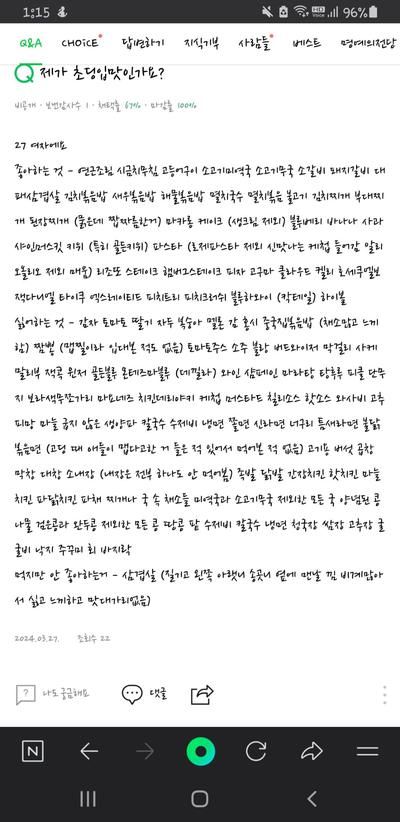 1:15
96%
Q&A CHOiCE 답변하기 지식기부 사람들 베스트 명예의전당
Q 제가 초딩입맛인가요?
비공개 · 보낸감사수 1 · 채택률 67% · 마감률 100%
27 여자에요
좋아하는 것 - 연근조림 시금치무침 고등어구이 소고기미역국 소고기무국 소갈비 돼지갈비 대
패삼겹살 김치볶음밥 새우볶음밥 해물볶음밥 멸치국수 멸치볶음 불고기 김치찌개 부대찌
개 된장찌개 (묽은데 짭짜름한거) 마카롱 케이크 (생크림 제외) 블루베리 바나나 사과
샤인머스킷 키위 (특히 골든키위) 파스타 (로제파스타 제외 신맛나는 케첩 들어감 알리
오올리오 제외 매움) 리조또 스테이크 햄버그스테이크 피자 고구마 클라우드 켈리 호세쿠엘보
잭다니엘 타이쿠 엑스레이티드 피치트리 피치크러쉬 블루하와이 (칵테일) 하이볼
싫어하는 것 - 감자 토마토 딸기 자두 복숭아 멜론 감 홍시 중국집볶음밥 (채소많고 느끼
함) 짬뽕 (맵찔이라 입대본 적도 없음) 토마토주스 소주 불랑 버드와이저 막걸리 사케
말리부 잭콕 원저 골드블루 몬테즈마블루 (데낄라) 와인 샴페인 마라탕 탕후루 피클 단무
지 보라색무장가리 마요네즈 치킨데리야키 케첩 머스타드 칠리소스 핫소스 와사비 고추
피망 마늘 굽지 않은 생양파 칼국수 수제비 냉면 쫄면 신라면 너구리 틈새라면 불닭
볶음면 (고딩 때 애들이 맵다고한 거 들은 적 있어서 먹어본 적 없음) 고기용 버섯 곱창
막창 대창 소내장 (내장은 전부 하나도 안 먹어봄) 족발 닭발 간장치킨 핫치킨 마늘
치킨 파닭치킨 파채 찌개나 국 속 채소들 미역국과 소고기무국 제외한 모든 국 양념된 콩
나물 검은콩과 완두콩 제외한 모든 콩 땅콩 팥 수제비 칼국수 냉면 청국장 쌈장 고추장 굴
굴비 낙지 주꾸미 회 바지락
먹지만 안 좋아하는거 - 삼겹살 (질기고 왼쪽 아랫니 송곳니 옆에 맨날 낌 비계많아
서 싫고 느끼하고 맛대가리없음)
2024.03.27. 조회수 22
나도 궁금해요 댓글
N